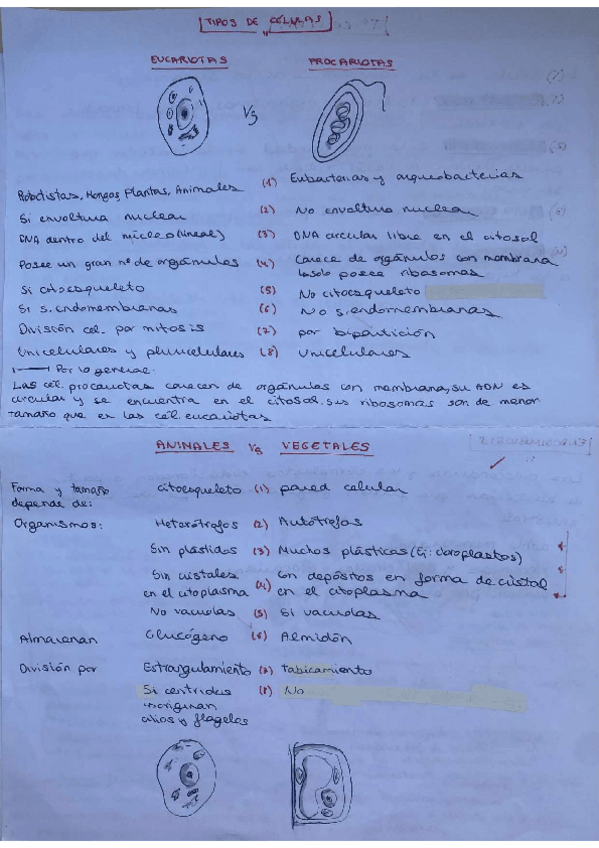 TIPOS DE CÉLULAS
EUCARIOTAS PROCARIOTAS
Vs
Hongos, Plantas, Animales (1) Eubacterias y arqueobacterias
Si envoltura nuclear (2) No envoltura nuclear
DNA dentro del núcleo (lineal) (3) DNA circular libre en el citosol
Posee un gran nº de orgánulos (4) Carece de orgánulos con membrana
posee ribosomas
Si citoesqueleto (5) No citoesqueleto
Si s. endomembranas (6) No s. endomembranas
División cel. por mitosis (7) por bipartición
Unicelulares y pluricelulares (8) Unicelulares
Por lo general.
Las cél. procariotas carecen de orgánulos con membrana, su ADN es
circular y se encuentra en el citosol. Sus ribosomas son de menor
tamaño que en las cél. eucariotas
ANIMALES Vs VEGETALES
Forma y tamaño citoesqueleto (1) pared celular
depende de:
Organismos: Heterótrofos (2) Autótrofos
Sin plástidos (3) Muchos plásticos (Ej: cloroplastos)
Sin cristales (4) Con depósitos en forma de cristal
en el citoplasma en el citoplasma
No vacuolas (5) Si vacuolas
Almacenan Glucógeno (6) Almidón
División por Estrangulamiento (7) tabicamiento
Si centriolos (8) No
originan
cilios y flagelos